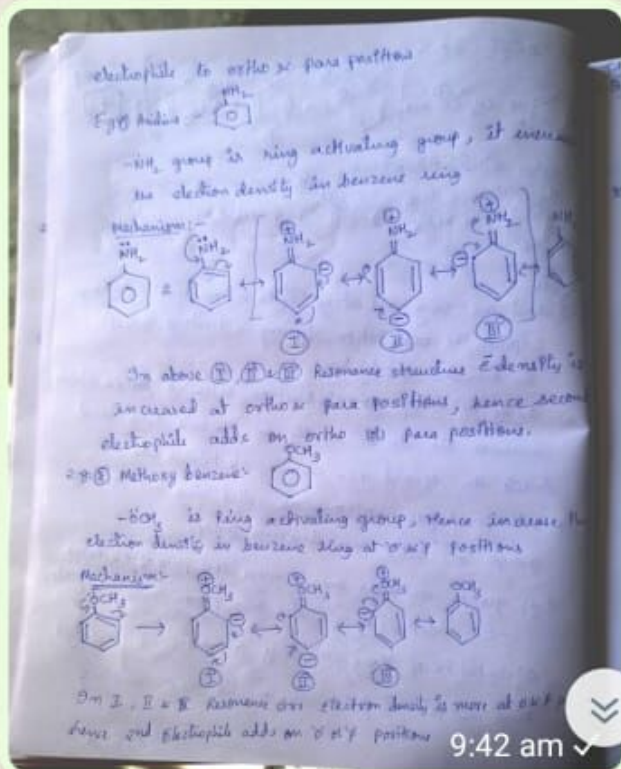 electrophile to ortho & para position
NH₂
Eg① Aniline :-
-N̈H₂ group is ring activating group, it
the election density in benzene ring
Mechanism:-
N̈H₂ N̈H₂ ⊕ NH₂ ⊕ NH₂ ⊕ NH₂ NH
Ⓘ Ⓘ Ⓘ
In above Ⓘ, Ⅱ & Ⅲ Resonance structure ē density is
increased at ortho & para positions, hence second
electrophile adds on ortho para positions.
OCH₃
Methoxy benzene:-
-ÖCH₃ is Ring activating group, Hence increase
election density in benzene ring at positions
Mechanism:-
ÖCH₃ ⊕ OCH₃ ⊕ OCH₃ ⊕ OCH₃ OCH₃
Ⓘ Ⅱ Ⅲ
In I, II & III Resonance electron density is more at
hence 2nd Electrophile adds on positions
9:42 am